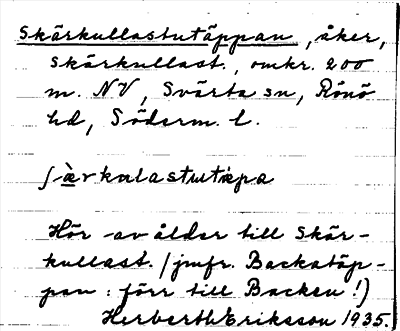 Skärkullastutäppan, åker,
Skärkullast., omkr. 200
m. NV, Svärta sn, Rönö
hd, Söderm. l.
ʃærkulastutæpa
Hör av ålder till Skär-
kullast. (jmfr. Backatäp-
pan: förr till Backen!)
Herberth Eriksson 1935.